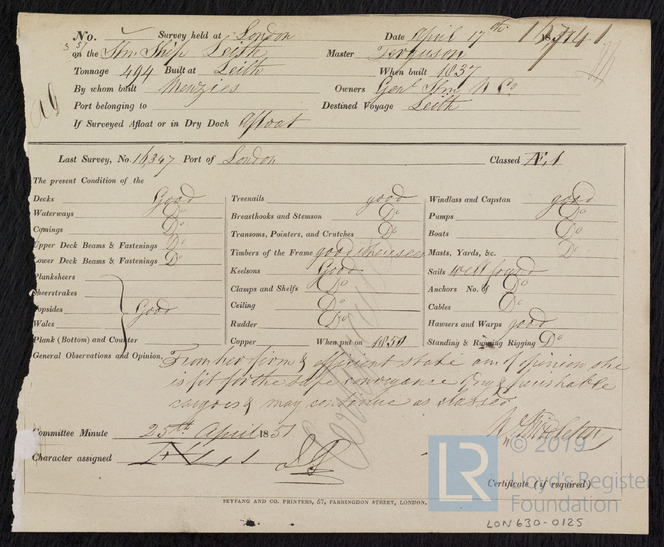 No. Survey held at London Date April 17th 1851
on the Stm Ship Leith Master Ferguson
Tonnage 494 Built at Leith When built 1837
By whom built Menzies Owners Genl Stm N Co
Port belonging to Destined Voyage Leith
If Surveyed Afloat or in Dry Dock Afloat
Last Survey, No. 16347 Port of London Classed Æ 1
The present Condition of the
Decks Good
Waterways Do
Comings Do
Upper Deck Beams & Fastenings Do
Lower Deck Beams & Fastenings Do
Planksheers
Sheerstrakes
Topsides Good
Wales
Plank (Bottom) and Counter
Treenails good
Breasthooks and Stemson Do
Transoms, Pointers, and Crutches Do
Timbers of the Frame good where seen
Keelsons Good
Clamps and Shelfs Do
Ceiling Do
Rudder Do
Copper When put on 1850
Windlass and Capstan good
Pumps Do
Boats Do
Masts, Yards, &c. Do
Sails well found
Anchors No. of Do
Cables Do
Hawsers and Warps good
Standing & Running Rigging Do
General Observations and Opinion, From her firm & efficient state am of opinion she
is fit for the safe conveyance of dry & perishable
cargoes & may continue as classed
Committee Minute 25th April 1851
Character assigned Æ 1
Certificate (if required)
SEYFANG AND CO. PRINTERS, 57, FARRINGDON STREET, LONDON.
© 2019
LR Lloyd's Register
Foundation
LON630-0125